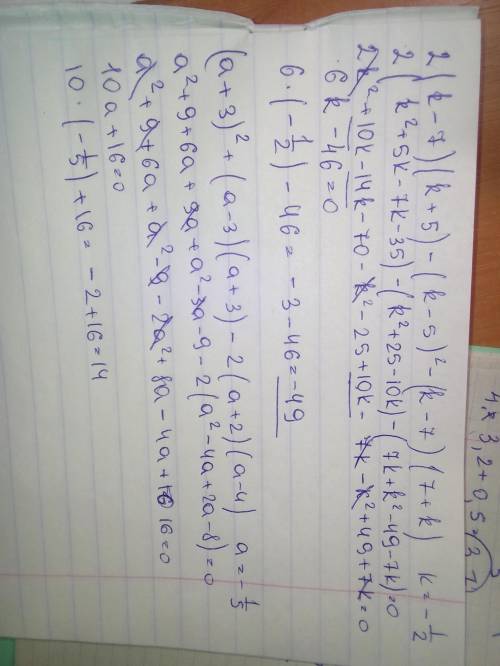 4,2 3,2+0,5
2(k-7)(k+5)-(k-5)²-(k-7)(7+k) k=-1/2
2(k²+5k-7k-35)-(k²+25-10k)-(7k+k²-49-7k)=0
2k²+10k-14k-70-k²-25+10k-7k-k²+49+7k=0
6k-46=0
6·(-1/2)-46=-3-46=-49
(a+3)²+(a-3)(a+3)-2(a+2)(a-4) a=-1/5
a²+9+6a+3a+a²-3a-9-2(a²-4a+2a-8)=0
a²+9+6a+a²-9-2a²+8a-4a+16=0
10a+16=0
10·(-1/5)+16=-2+16=14